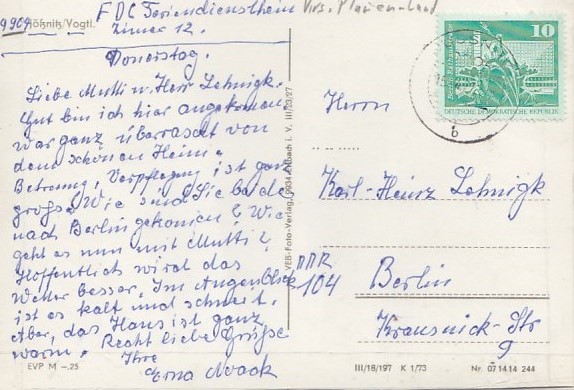 FDC Feriendienstheim
Vors. Plauen-Land
9909
Rößnitz/Vogtl.
Zimmer 12.
Donnerstag.
Liebe Mutti u. Herr Lehnigk.
Gut bin ich hier angekommen
war ganz überrascht von
dem schönen Heim.
Betreuung, Verpflegung ist ganz
groß. Wie sind Sie beide
nach Berlin gekommen? Wie
geht es nun mit Mutti?
Hoffentlich wird das
Wetter besser. Im Augenblick
ist es kalt und schneit.
Aber, das Haus ist ganz
warm. Recht liebe Grüße
Ihre
Erna
EVP M –.25
VEB-Foto-Verlag, 9934 Erlbach i. V. III/23/27
10
DEUTSCHE DEMOKRATISCHE REPUBLIK
b
Herrn
Karl-Heinz Lehnigk
DDR
104 Berlin
Krausnick-Str
9
III/18/197 K 1/73
Nr. 07 14 14 244